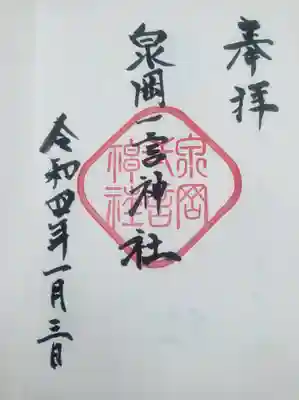 奉拝
泉岡一言神社
泉岡
一言
神社
令和四年一月三日